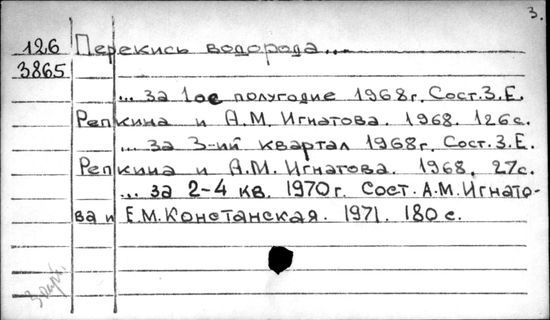 3.
126 Перекись водорода...
3865
... за 1ое полугодие 1968г. Сост. З.Е.
Репкина и А.М. Игнатова. 1968. 126с.
... за 3-ий квартал 1968г. Сост. З.Е.
Репкина и А.М. Игнатова. 1968. 27с.
... за 2-4 кв. 1970г. Сост. А.М. Игнато-
ва и Е.М. Констанская. 1971. 180 с.